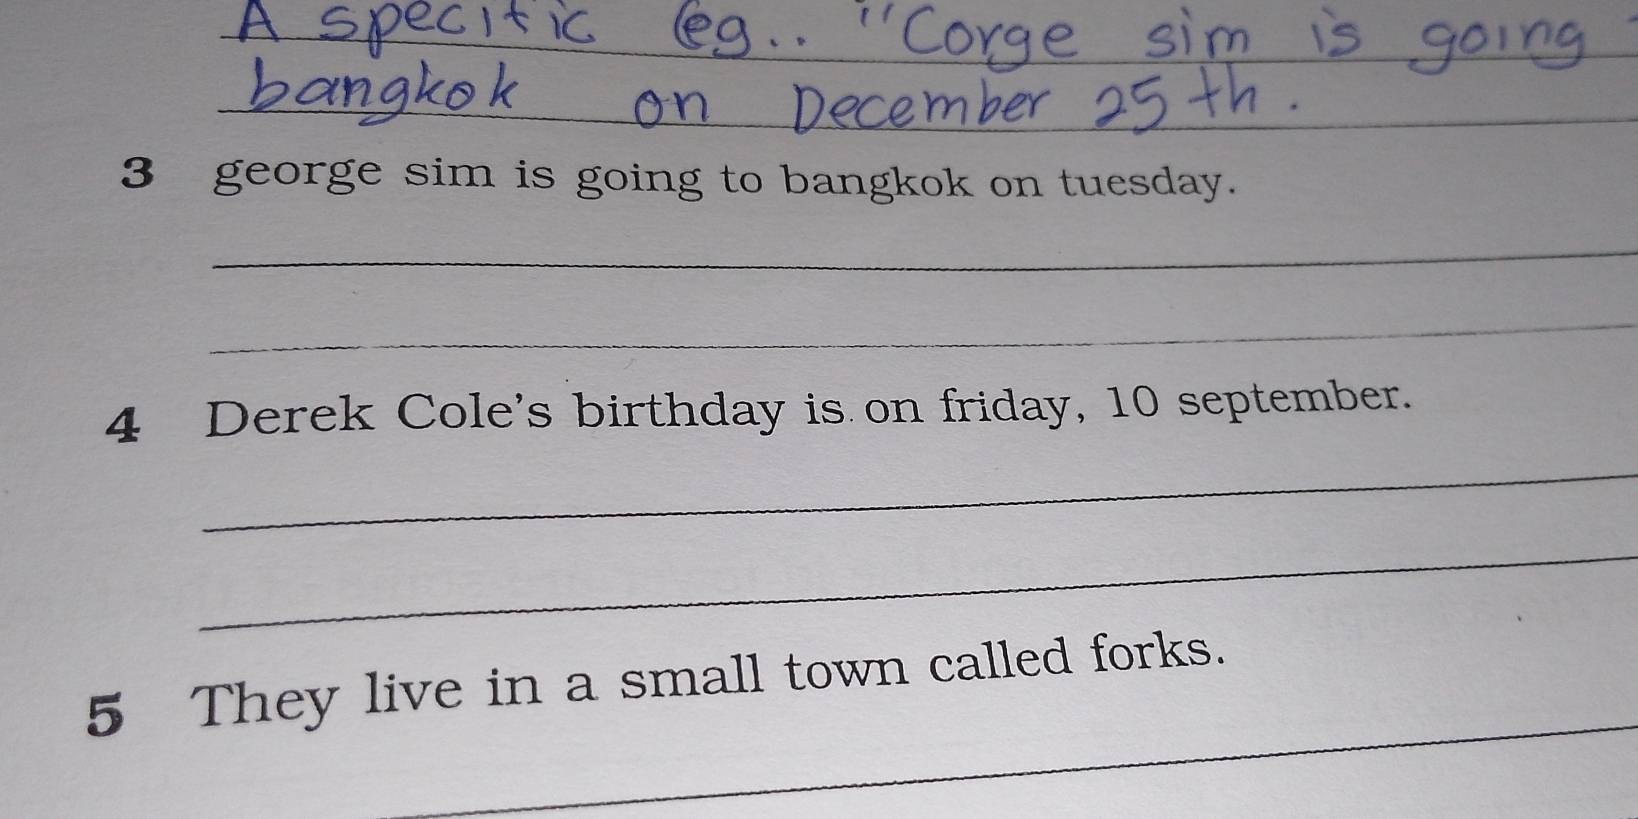 A specific eg.. "Corge sim is going
bangkok on December 25th.
3 george sim is going to bangkok on tuesday.
4 Derek Cole's birthday is on friday, 10 september.
5 They live in a small town called forks.